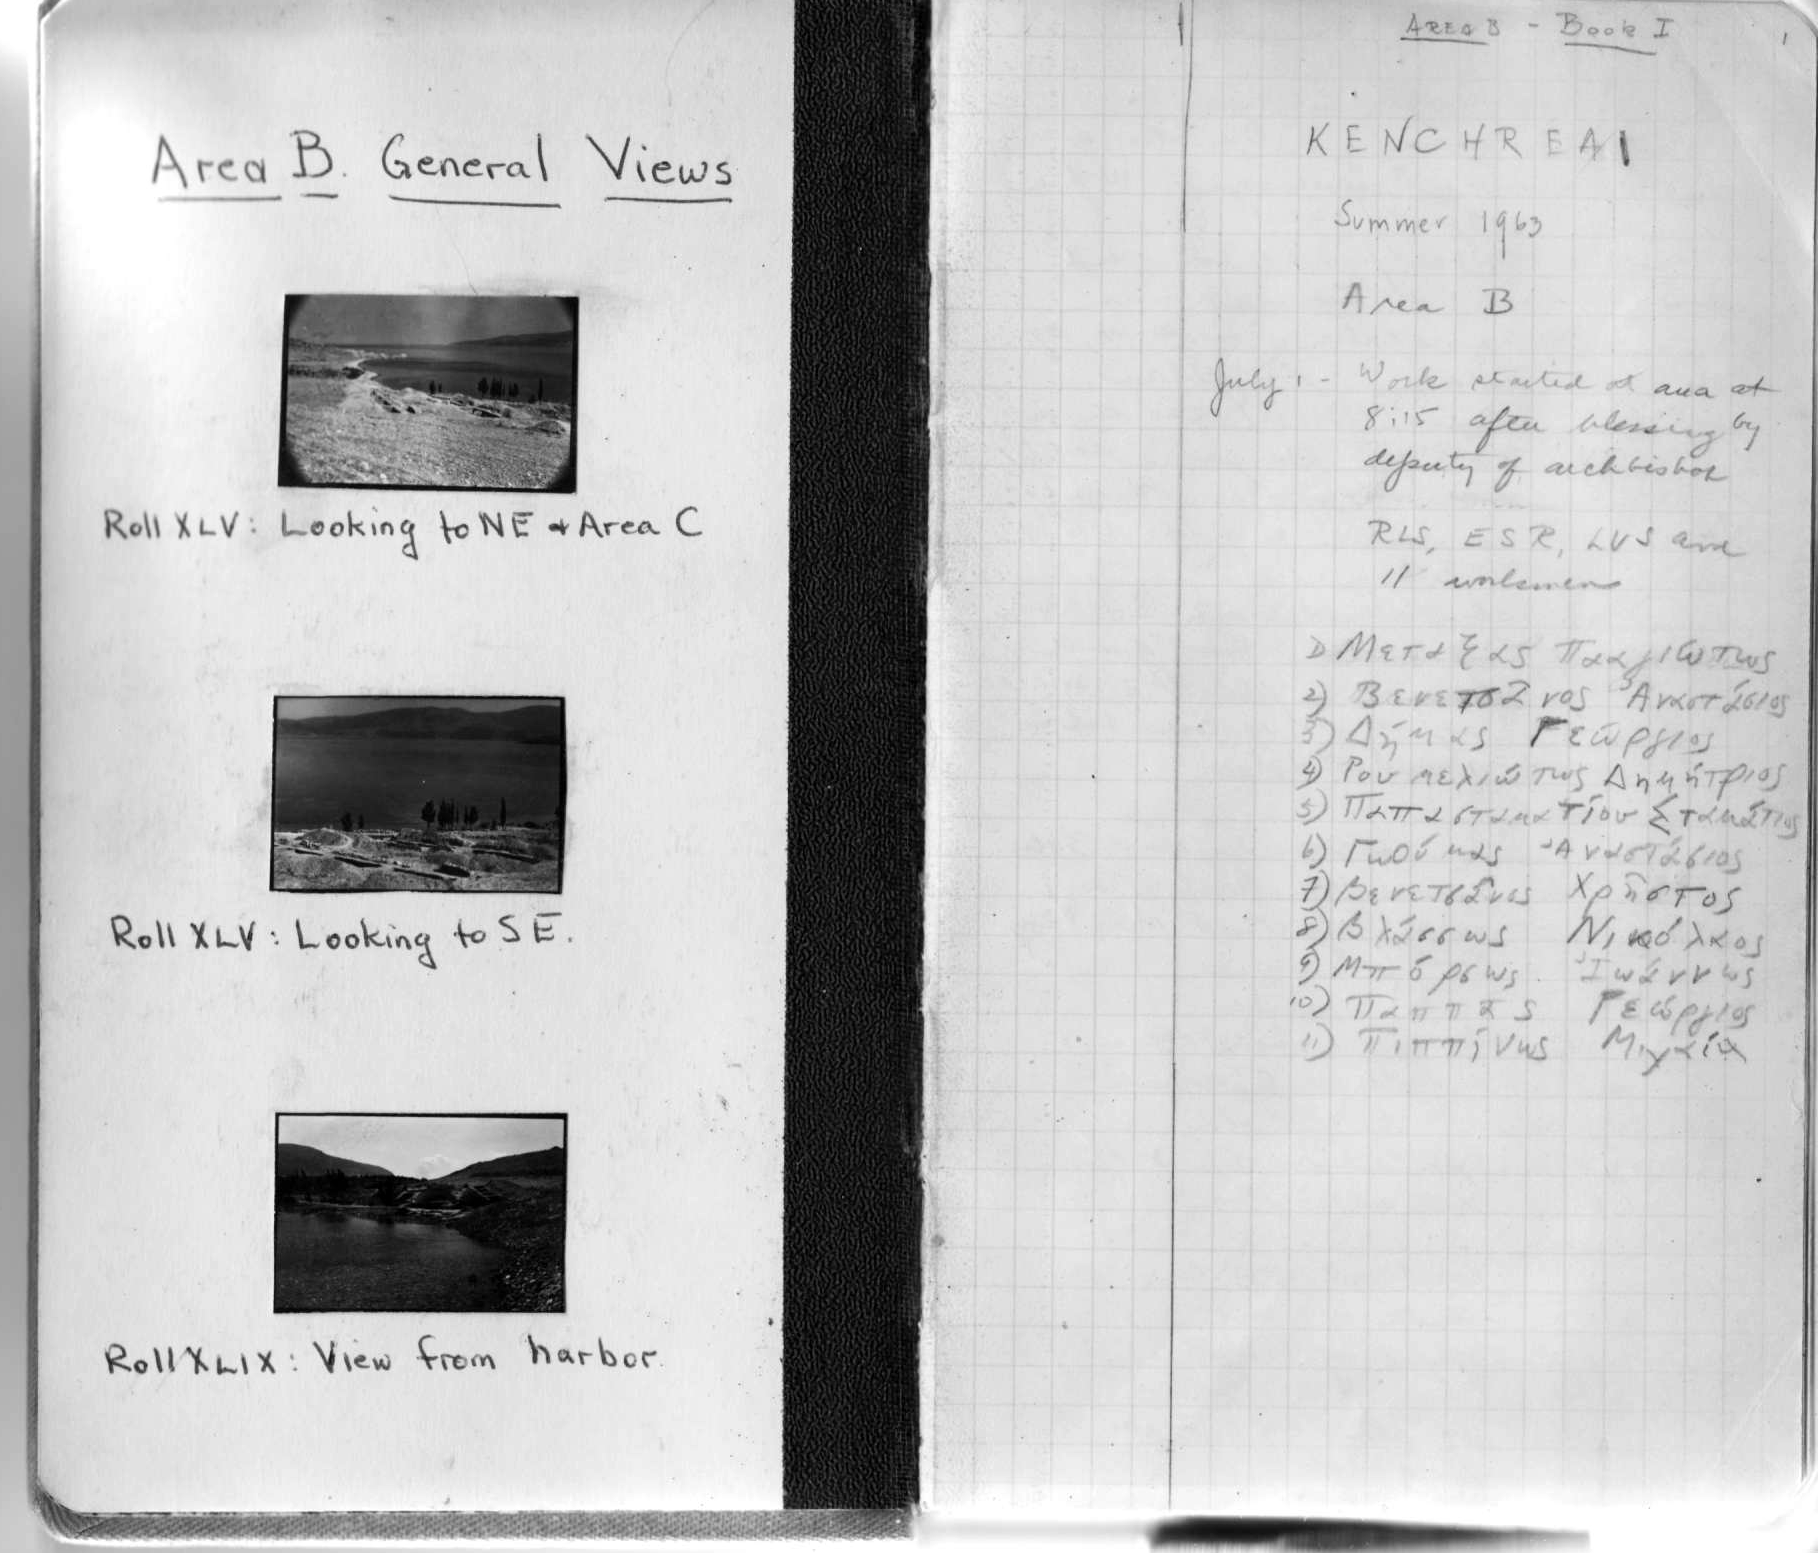 Area B. General Views
Roll XLV: Looking to NE + Area C
Roll XLV: Looking to SE.
Roll XLIX: View from harbor.
AREA B - Book I
1
KENCHREAI
Summer 1963
Area B
July 1 - Work started at area at
8:15 after blessing by
deputy of archbishop
RLS, ESR, LVS and
11 workmen
1) Μεταξας
2) Βενετσᾶνος Ἀναστάσιος
3) Δήμας Γεώργιος
4) Ρουμελιώτης Δημήτριος
5) Παπασταματίου Σταμάτιος
6) Ἀναστάσιος
7) Βενετσᾶνος Χρῆστος
8) Βλάσσης Νικόλαος
9) Μπόρσης Ἰωάννης
10) Παππᾶς Γεώργιος
11) Πιππίνης